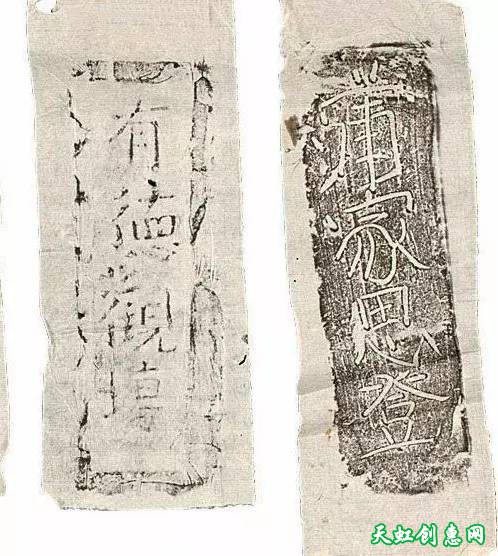 蒲家思登
有德觀塼
天虹创意网